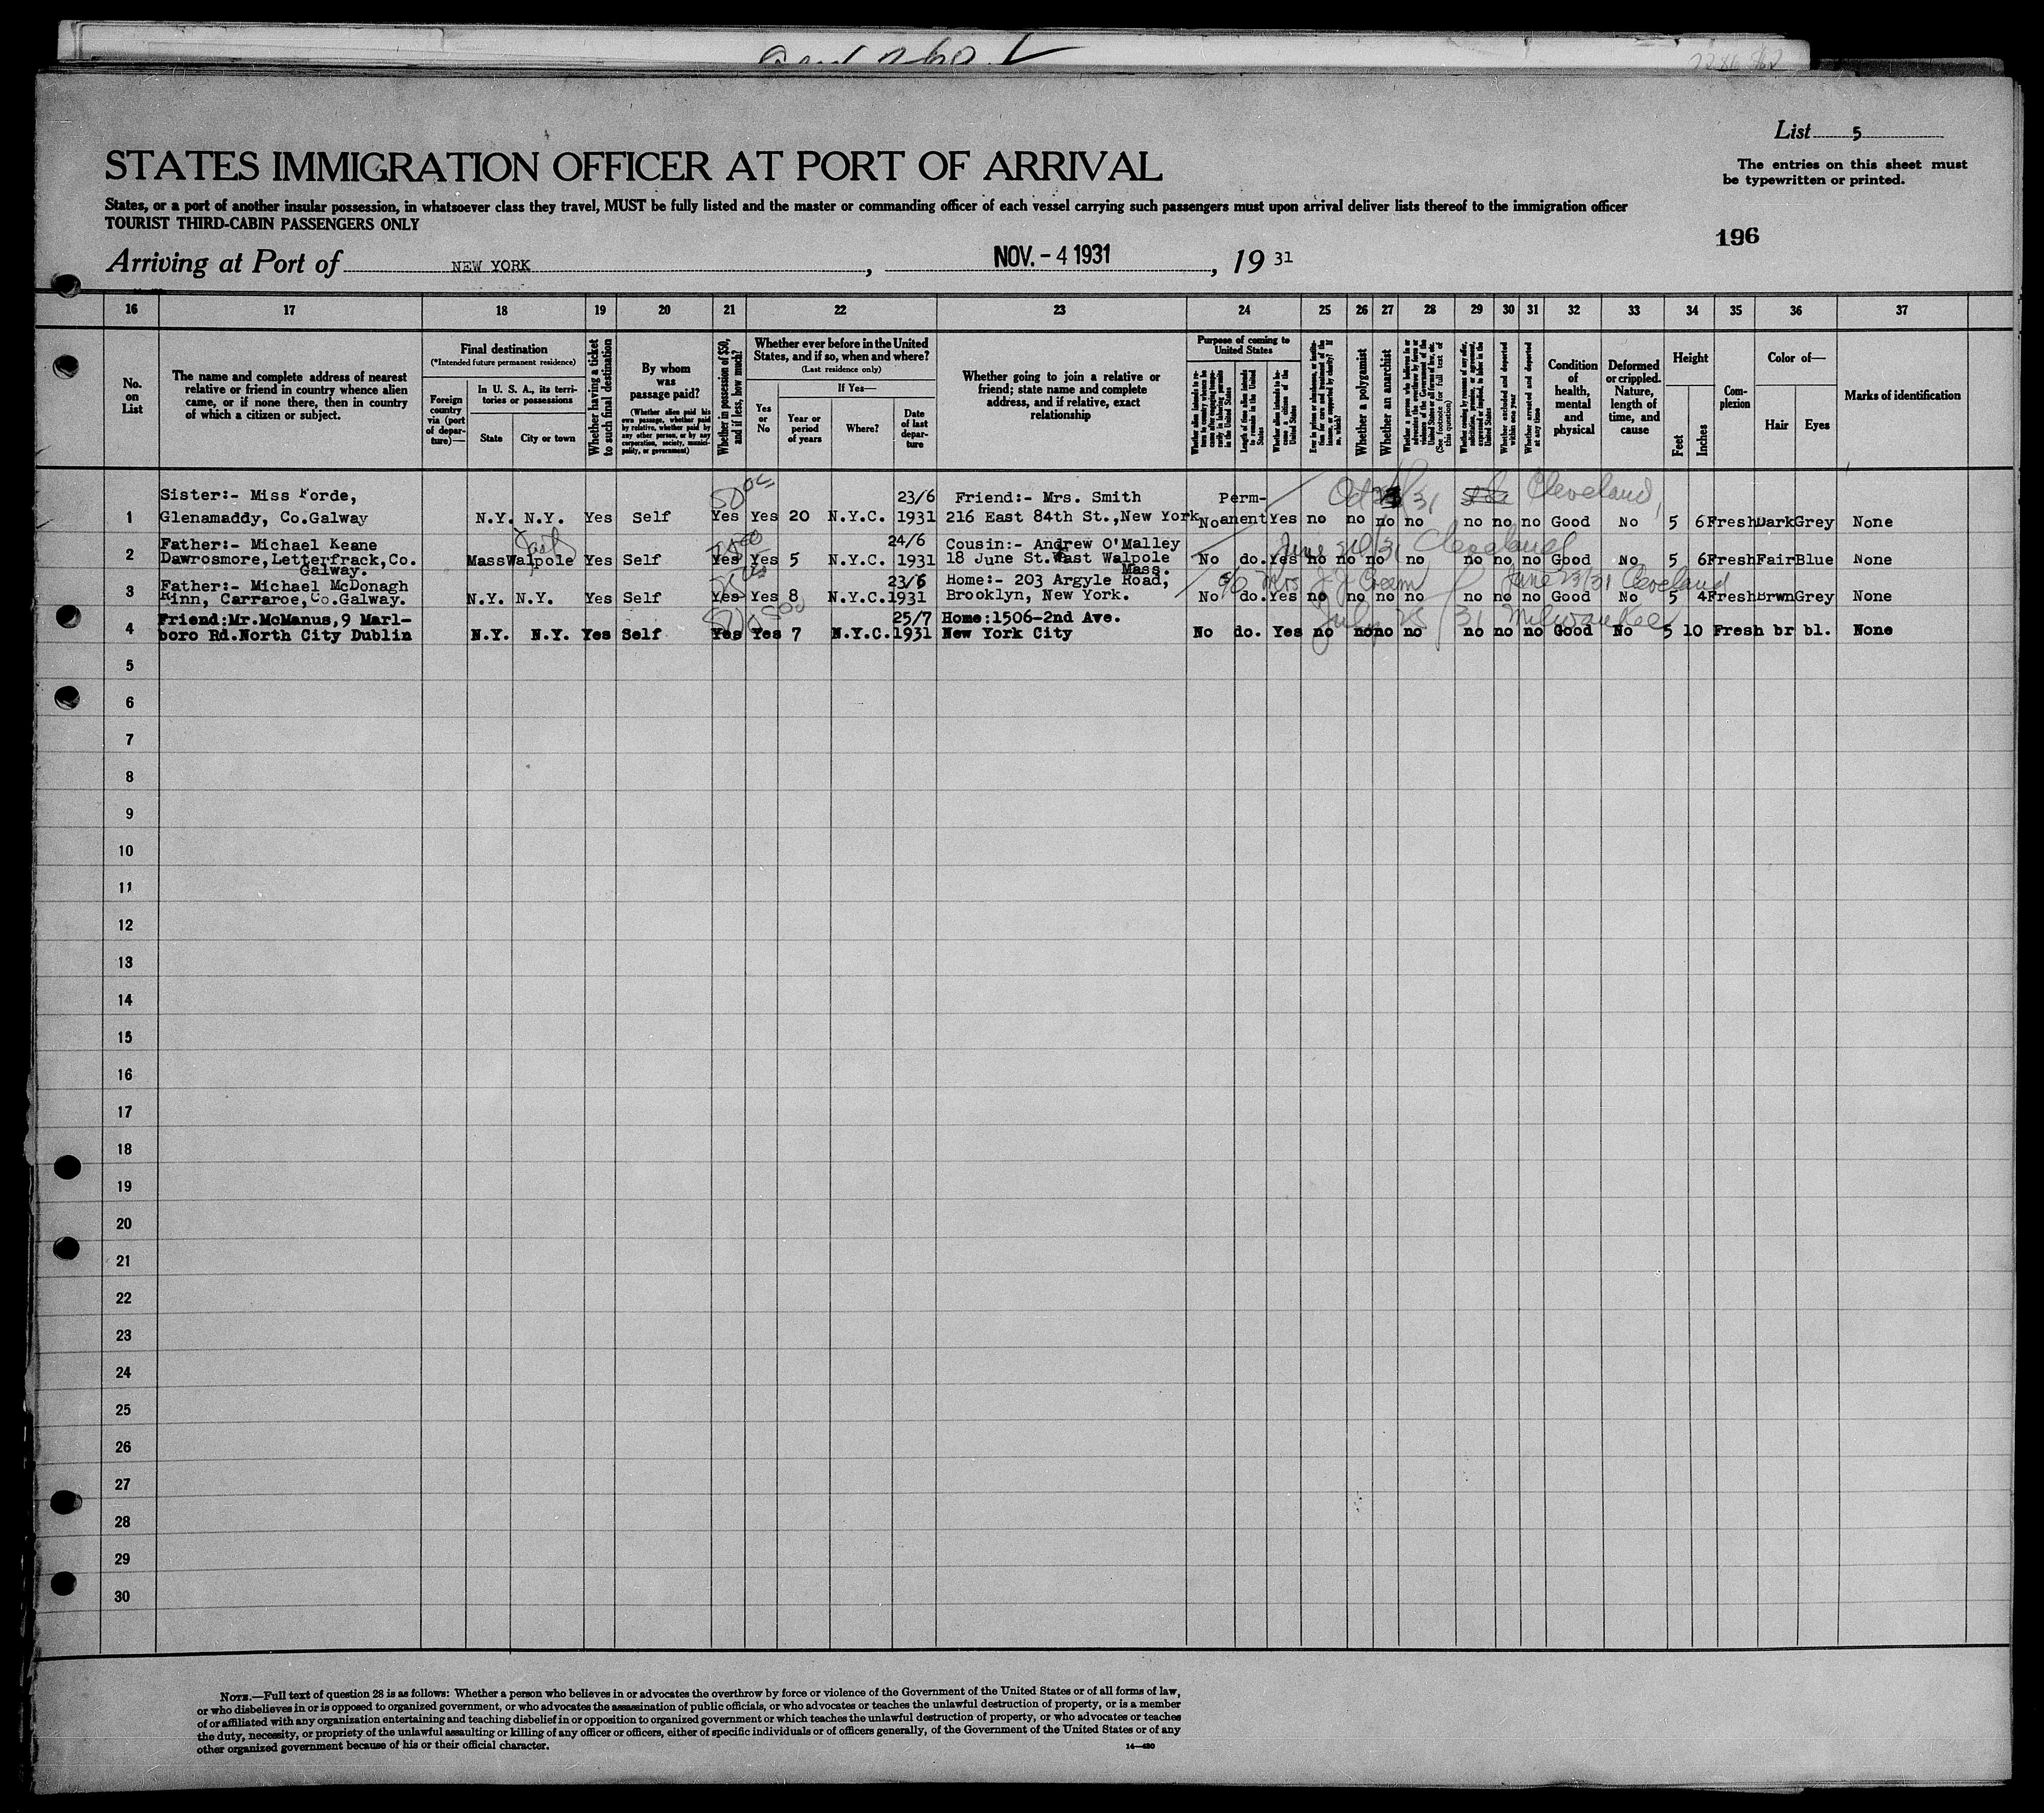 List 5
The entries on this sheet must
be typewritten or printed.
STATES IMMIGRATION OFFICER AT PORT OF ARRIVAL
States, or a port of another insular possession, in whatsoever class they travel, MUST be fully listed and the master or commanding officer of each vessel carrying such passengers must upon arrival deliver lists thereof to the immigration officer
TOURIST THIRD-CABIN PASSENGERS ONLY
196
Arriving at Port of NEW YORK, NOV. - 4 1931, 19 31
16 17 18 19 20 21 22 23 24 25 26 27 28 29 30 31 32 33 34 35 36 37
No.
on
List
The name and complete address of nearest
relative or friend in country whence alien
came, or if none there, then in country
of which a citizen or subject.
Final destination
(*Intended future permanent residence)
Foreign
country
via (port
of depar-
ture)—
In U. S. A., its terri-
tories or possessions
State
City or town
Whether having a ticket
to such final destination
By whom
was
passage paid?
(Whether alien paid his
own passage, whether paid
by relative, whether paid by
any other person, or by any
corporation, society, munici-
pality, or government)
Whether in possession of $50,
and if less, how much?
Whether ever before in the United
States, and if so, when and where?
(Last residence only)
Yes
or
No
If Yes—
Year or
period
of years
Where?
Date
of last
depar-
ture
Whether going to join a relative or
friend; state name and complete
address, and if relative, exact
relationship
Purpose of coming to
United States
Length of time alien intends
to remain in the United
States
Whether alien intends to be-
come a citizen of the
United States
Whether a polygamist
Whether an anarchist
(See footnote for full text of
this question)
Whether excluded and deported
within one year
Whether arrested and deported
at any time
Condition
of
health,
mental
and
physical
Deformed
or crippled.
Nature,
length of
time, and
cause
Height
Feet
Inches
Com-
plexion
Color of—
Hair
Eyes
Marks of identification
Sister:- Miss Forde, 50 23/6 Friend:- Mrs. Smith Perm- Oct /31 Cleveland,
1 Glenamaddy, Co.Galway N.Y. N.Y. Yes Self Yes Yes 20 N.Y.C. 1931 216 East 84th St.,New York No anent Yes no no no no no no no Good No 5 6 Fresh Dark Grey None
Father:- Michael Keane East 24/6 Cousin:- Andrew O'Malley June 24/31 Cleveland
2 Dawrosmore,Letterfrack,Co. Mass Walpole Yes Self Yes Yes 5 N.Y.C. 1931 18 June St. East Walpole No do. Yes no no no no no no no Good No 5 6 Fresh Fair Blue None
Galway. Mass.
Father:- Michael McDonagh 23/6 Home:- 203 Argyle Road, c/o Mrs J.J. June 23/31 Cleveland
3 Rinn, Carraroe, Co.Galway. N.Y. N.Y. Yes Self Yes Yes 8 N.Y.C. 1931 Brooklyn, New York. No do. Yes no no no no no no no Good No 5 4 Fresh Brwn Grey None
Friend:Mr.McManus,9 Marl- 25/7 Home:1506-2nd Ave. July 25/31 Milwaukee
4 boro Rd.North City Dublin N.Y. N.Y. Yes Self Yes Yes 7 N.Y.C. 1931 New York City No do. Yes no no no no no no no Good No 5 10 Fresh br bl. None
5
6
7
8
9
10
11
12
13
14
15
16
17
18
19
20
21
22
23
24
25
26
27
28
29
30
NOTE.—Full text of question 28 is as follows: Whether a person who believes in or advocates the overthrow by force or violence of the Government of the United States or of all forms of law,
or who disbelieves in or is opposed to organized government, or who advocates the assassination of public officials, or who advocates or teaches the unlawful destruction of property, or is a member
of or affiliated with any organization entertaining and teaching disbelief in or opposition to organized government or which teaches the unlawful destruction of property, or who advocates or teaches
the duty, necessity, or propriety of the unlawful assaulting or killing of any officer or officers, either of specific individuals or of officers generally, of the Government of the United States or of any
other organized government because of his or their official character.
14—430